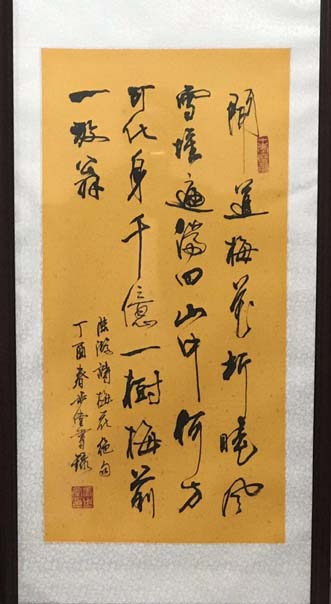 聞道梅花折曉風
雪堆遍滿四山中何方
可化身千億一樹梅前
一放翁
陸游詩梅花絶句
丁酉春書錄